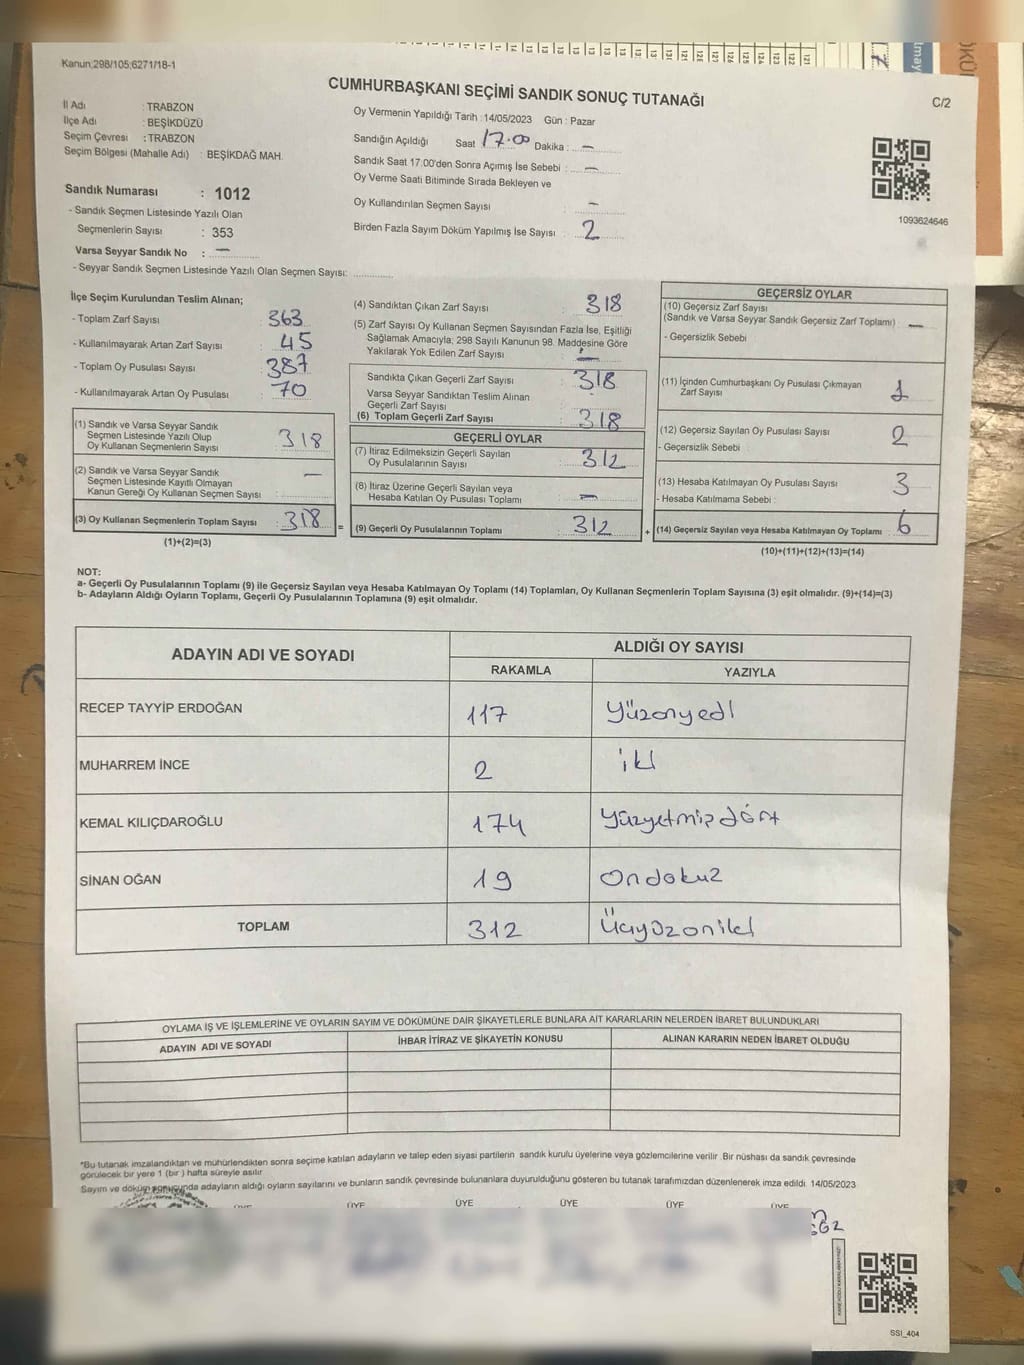 Kanun;298/105;6271/18-1
CUMHURBAŞKANI SEÇİMİ SANDIK SONUÇ TUTANAĞI
C/2
İl Adı : TRABZON
İlçe Adı : BEŞİKDÜZÜ
Seçim Çevresi : TRABZON
Seçim Bölgesi (Mahalle Adı) : BEŞİKDAĞ MAH.
Sandık Numarası : 1012
- Sandık Seçmen Listesinde Yazılı Olan
Seçmenlerin Sayısı : 353
Varsa Seyyar Sandık No : —
- Seyyar Sandık Seçmen Listesinde Yazılı Olan Seçmen Sayısı: ............
Oy Vermenin Yapıldığı Tarih : 14/05/2023 Gün : Pazar
Sandığın Açıldığı Saat 17.00 Dakika : —
Sandık Saat 17:00'den Sonra Açımış İse Sebebi : —
Oy Verme Saati Bitiminde Sırada Bekleyen ve
Oy Kullandırılan Seçmen Sayısı : —
Birden Fazla Sayım Döküm Yapılmış İse Sayısı : 2
1093624646
İlçe Seçim Kurulundan Teslim Alınan;
- Toplam Zarf Sayısı : 363
- Kullanılmayarak Artan Zarf Sayısı : 45
- Toplam Oy Pusulası Sayısı : 387
- Kullanılmayarak Artan Oy Pusulası : 70
(1) Sandık ve Varsa Seyyar Sandık
Seçmen Listesinde Yazılı Olup
Oy Kullanan Seçmenlerin Sayısı : 318
(2) Sandık ve Varsa Seyyar Sandık
Seçmen Listesinde Kayıtlı Olmayan
Kanun Gereği Oy Kullanan Seçmen Sayısı : —
(3) Oy Kullanan Seçmenlerin Toplam Sayısı : 318 =
(1)+(2)=(3)
(4) Sandıktan Çıkan Zarf Sayısı : 318
(5) Zarf Sayısı Oy Kullanan Seçmen Sayısından Fazla İse, Eşitliği
Sağlamak Amacıyla; 298 Sayılı Kanunun 98. Maddesine Göre
Yakılarak Yok Edilen Zarf Sayısı : —
Sandıkta Çıkan Geçerli Zarf Sayısı : 318
Varsa Seyyar Sandıktan Teslim Alınan
Geçerli Zarf Sayısı :
(6) Toplam Geçerli Zarf Sayısı : 318
GEÇERLİ OYLAR
(7) İtiraz Edilmeksizin Geçerli Sayılan
Oy Pusulalarının Sayısı : 312
(8) İtiraz Üzerine Geçerli Sayılan veya
Hesaba Katılan Oy Pusulası Toplamı : —
(9) Geçerli Oy Pusulalarının Toplamı : 312 +
GEÇERSİZ OYLAR
(10) Geçersiz Zarf Sayısı
(Sandık ve Varsa Seyyar Sandık Geçersiz Zarf Toplamı) : —
- Geçersizlik Sebebi
(11) İçinden Cumhurbaşkanı Oy Pusulası Çıkmayan
Zarf Sayısı 1
(12) Geçersiz Sayılan Oy Pusulası Sayısı 2
- Geçersizlik Sebebi :
(13) Hesaba Katılmayan Oy Pusulası Sayısı 3
- Hesaba Katılmama Sebebi :
(14) Geçersiz Sayılan veya Hesaba Katılmayan Oy Toplamı : 6
(10)+(11)+(12)+(13)=(14)
NOT:
a- Geçerli Oy Pusulalarının Toplamı (9) ile Geçersiz Sayılan veya Hesaba Katılmayan Oy Toplamı (14) Toplamları, Oy Kullanan Seçmenlerin Toplam Sayısına (3) eşit olmalıdır. (9)+(14)=(3)
b- Adayların Aldığı Oyların Toplamı, Geçerli Oy Pusulalarının Toplamına (9) eşit olmalıdır.
ADAYIN ADI VE SOYADI ALDIĞI OY SAYISI
RAKAMLA YAZIYLA
RECEP TAYYİP ERDOĞAN 117 Yüzonyedi
MUHARREM İNCE 2 iki
KEMAL KILIÇDAROĞLU 174 Yüzyetmişdört
SİNAN OĞAN 19 Ondokuz
TOPLAM 312 Üçyüzoniki
OYLAMA İŞ VE İŞLEMLERİNE VE OYLARIN SAYIM VE DÖKÜMÜNE DAİR ŞİKAYETLERLE BUNLARA AİT KARARLARIN NELERDEN İBARET BULUNDUKLARI
ADAYIN ADI VE SOYADI İHBAR İTİRAZ VE ŞİKAYETİN KONUSU ALINAN KARARIN NEDEN İBARET OLDUĞU
*Bu tutanak imzalandıktan ve mühürlendikten sonra seçime katılan adayların ve talep eden siyasi partilerin sandık kurulu üyelerine veya gözlemcilerine verilir .Bir nüshası da sandık çevresinde
görülecek bir yere 1 (bir ) hafta süreyle asılır.
Sayım ve döküm sonucunda adayların aldığı oyların sayılarını ve bunların sandık çevresinde bulunanlara duyurulduğunu gösteren bu tutanak tarafımızdan düzenlenerek imza edildi. 14/05/2023
ÜYE ÜYE ÜYE ÜYE ÜYE ÜYE
SSİ_404